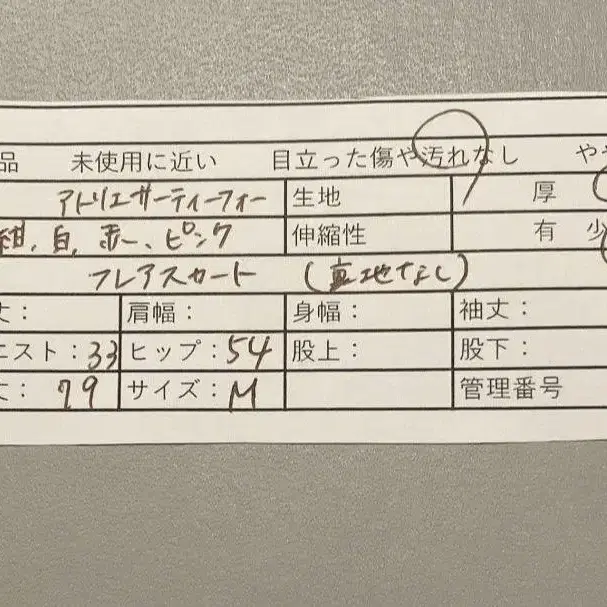 品 未使用に近い 目立った傷や汚れなし やや
アトリエサーティーフォー 生地 厚
紺、白、赤、ピンク 伸縮性 有 少
フレアスカート (裏地なし)
丈: 肩幅: 身幅: 袖丈:
エスト:33 ヒップ:54 股上: 股下:
丈: 79 サイズ:M 管理番号